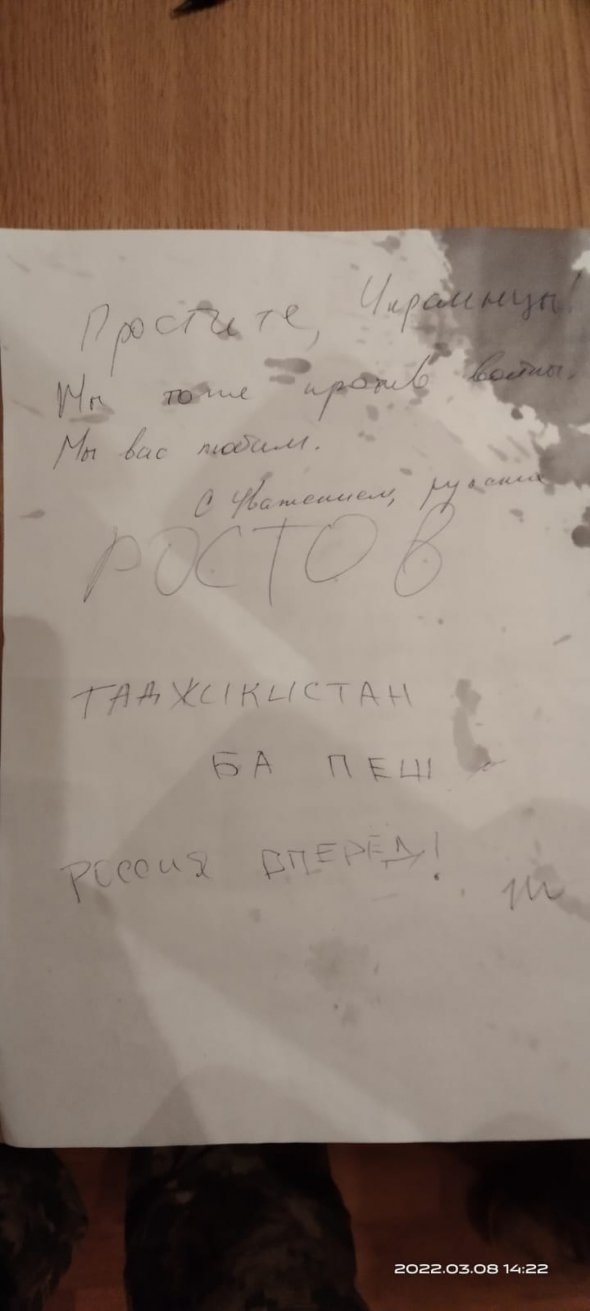 Простите, Украинцы!
Мы тоже против войны.
Мы вас любим.
С Уважением, русские
РОСТОВ
ТАДЖИКИСТАН
БА ПЕШ
РОССИЯ ВПЕРЁД!
2022.03.08 14:22